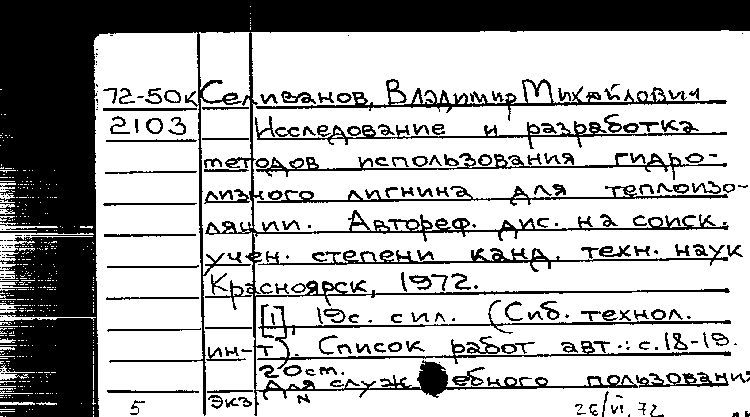 72-50к Селиванов, Владимир Михайлович
2103 Исследование и разработка
методов использования гидро-
лизного лигнина для теплоизо-
ляции. Автореф. дис. на соиск.
учен. степени канд. техн. наук
Красноярск, 1972.
[1], 19с. с ил. (Сиб. технол.
ин-т). Список работ авт.: с.18-19.
20ст.
Для служебного пользования
5 экз N 26/VI.72